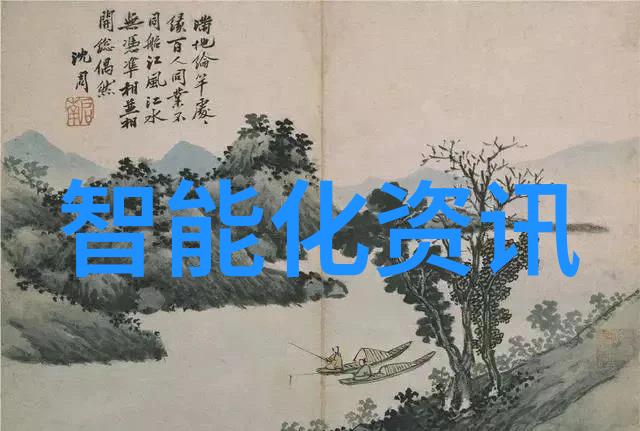 滿地綸竿處處
緣百人同業不
同船江風江水
無憑準相並相
開總偶然
沈周
智能化资讯